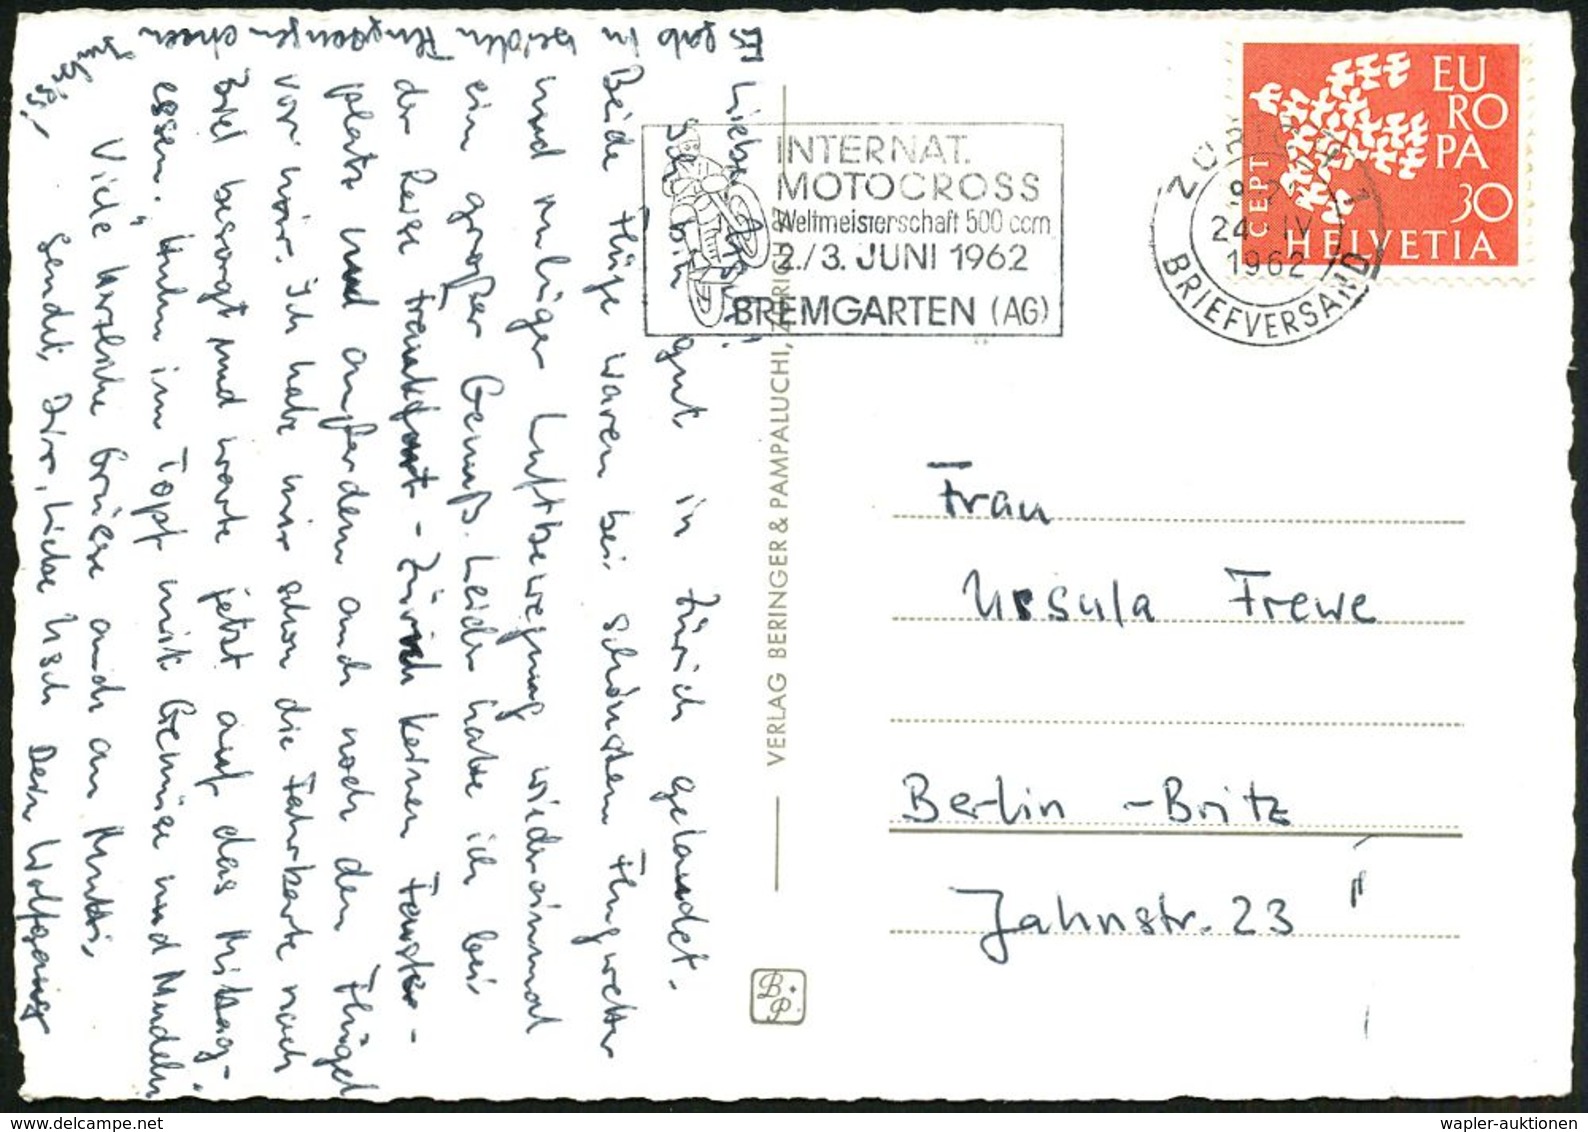 Liebe Usch!
Ich bin gut in Zürich gelandet.
Beide Flüge waren bei schönstem Flugwetter
und ruhiger Luftbewegung wiedereinmal
ein großer Genuß. Leider habe ich bei
der Reise Frankfurt - Zürich keinen Fenster-
platz und außerdem auch noch den Flügel
vor mir. Ich habe mir schon die Fahrkarte nach
besorgt und warte jetzt auf das Mittag-
essen: "Huhn im Topf mit Gemüse und Nudeln"
Viele herzliche Grüsse auch an Mutti,
sendet Dir, liebe Usch Dein Wolfgang
Es gab in beiden Flugzeugen einen
Imbiss!
INTERNAT.
MOTOCROSS
Weltmeisterschaft 500 ccm
2./3. JUNI 1962
BREMGARTEN (AG)
ZÜRICH 1
24. IV
1962
BRIEFVERSAND
EU
RO
PA
30
CEPT
HELVETIA
VERLAG BERINGER & PAMPALUCHI, ZÜRICH
B.
P.
Frau
Ursula Frewe
Berlin - Britz
Jahnstr. 23
wapler-auktionen